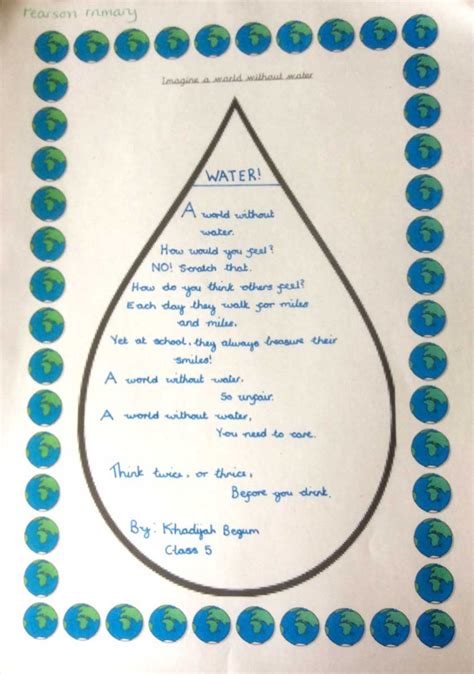 Pearson Primary
Imagine a world without water
WATER!
A world without
water.
How would you feel?
NO! Scratch that.
How do you think others feel?
Each day they walk for miles
and miles.
Yet at school, they always treasure their
smiles!
A world without water.
So unfair.
A world without water,
You need to care.
Think twice, or thrice,
Before you drink.
By: Khadijah Begum
Class 5